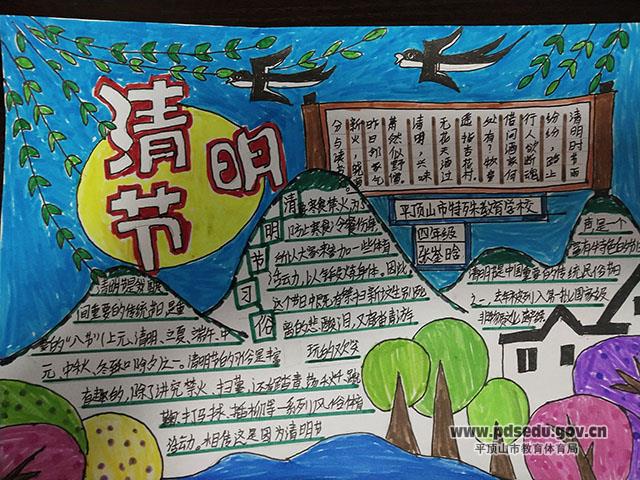 清明节
清明时节雨
纷纷，路上
行人欲断魂
借问酒家何
处有？牧童
遥指杏花村
无花无酒过
清明，兴味
萧然似野僧
昨日邻家乞
新火，晓窗
分与读书
平顶山市特殊教育学校
四年级
清明节习俗
清明提是中国重要的传统民俗节
日之一
间重要的传统节日，是重
要的"八节"（上元、清明、立夏、端午、中
元、中秋、冬至和除夕）之一。清明节的习俗是丰富
有趣的，除了讲究禁火、扫墓，还有踏青、荡秋千、踢
鞠、打马球、插柳等一系列风俗体育
活动。相传这是因为清明节
要寒食禁火，为了
防止寒食冷餐伤身，
所以大家来参加一些体育
活动，以人等锻炼身体，因此
这个节日中既有祭扫新坟生别死
留的悲酸泪，又有踏青游
玩的欢笑
www.pdsedu.gov.cn
平顶山市教育体育局